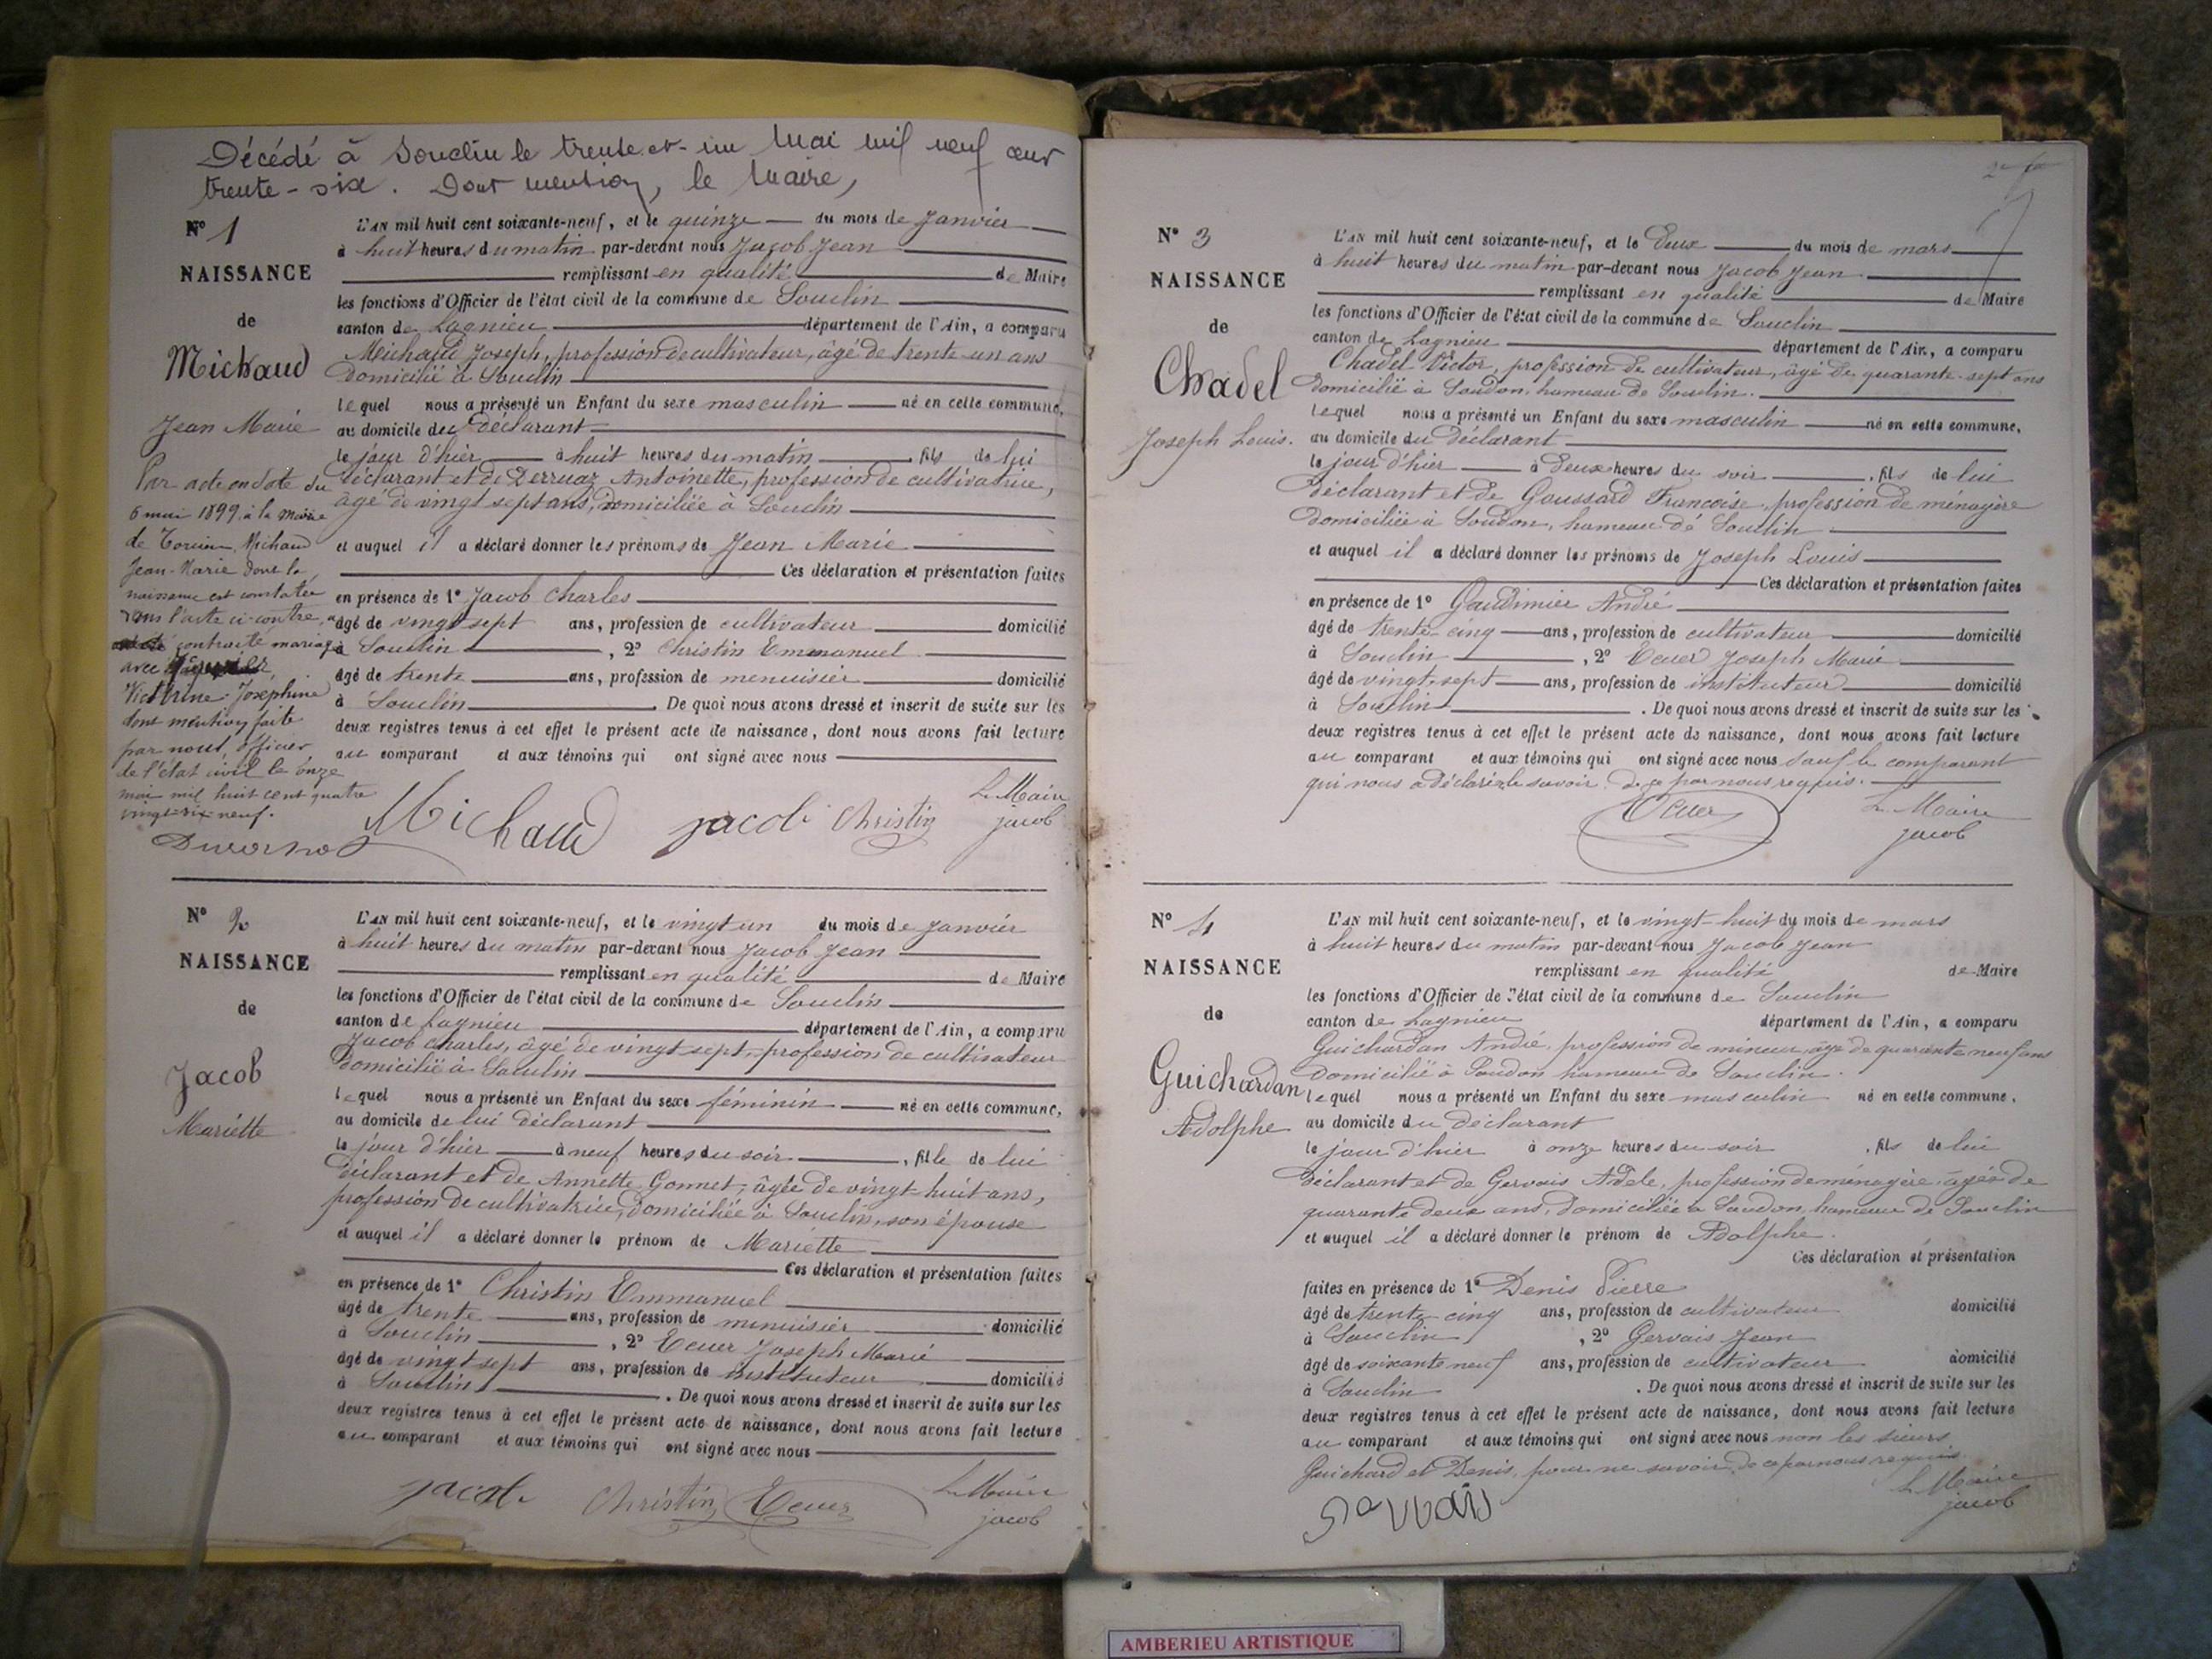 Décédé à Souclin le trente et un Mai mil neuf cent
trente-six. Dont mention, le Maire,
N° 1
NAISSANCE
de
Michaud
Jean Marie
Par acte en date du
6 mai 1899, à la Mairie
de Torcieu, Michaud
Jean-Marie dont la
naissance est constatée
dans l'acte ci-contre, a
contracté mariage
avec
Victorine Josephine
dont mention faite
par nous, officier
de l'état civil le onze
mai mil huit cent quatre
vingt-dix neuf.
L'AN mil huit cent soixante-neuf, et le quinze du mois de Janvier
à huit heures du matin par-devant nous Jacob Jean
remplissant en qualité de Maire
les fonctions d'Officier de l'état civil de la commune de Souclin
canton de Lagnieu département de l'Ain, a comparu
Michaud Joseph, profession de cultivateur, âgé de trente-un ans
domicilié à Souclin
lequel nous a présenté un Enfant du sexe masculin né en cette commune,
au domicile du déclarant
le jour d'hier à huit heures du matin, fils de lui
déclarant et de Derruaz Antoinette, profession de cultivatrice,
âgé de vingt sept ans, domiciliée à Souclin
et auquel il a déclaré donner les prénoms de Jean Marie
Ces déclaration et présentation faites
en présence de 1° Jacob Charles
âgé de vingt sept ans, profession de cultivateur domicilié
à Souclin, 2° Christin Emmanuel
âgé de trente ans, profession de menuisier domicilié
à Souclin. De quoi nous avons dressé et inscrit de suite sur les
deux registres tenus à cet effet le présent acte de naissance, dont nous avons fait lecture
au comparant et aux témoins qui ont signé avec nous
Michaud Jacob Christin Le Maire
jacob
N° 2
NAISSANCE
de
Jacob
Mariette
L'AN mil huit cent soixante-neuf, et le vingt un du mois de Janvier
à huit heures du matin par-devant nous Jacob Jean
remplissant en qualité de Maire
les fonctions d'Officier de l'état civil de la commune de Souclin
canton de Lagnieu département de l'Ain, a comparu
Jacob Charles, âgé de vingt sept, profession de cultivateur
domicilié à Souclin
lequel nous a présenté un Enfant du sexe féminin né en cette commune,
au domicile de lui déclarant
le jour d'hier à neuf heures du soir, fille de lui
déclarant et de Annette Gonnet, âgée de vingt-huit ans,
profession de cultivatrice, domiciliée à Souclin, son épouse
et auquel il a déclaré donner le prénom de Mariette
Ces déclaration et présentation faites
en présence de 1° Christin Emmanuel
âgé de trente ans, profession de menuisier domicilié
à Souclin, 2° Ecuer Joseph Marie
âgé de vingt sept ans, profession de instituteur domicilié
à Souclin. De quoi nous avons dressé et inscrit de suite sur les
deux registres tenus à cet effet le présent acte de naissance, dont nous avons fait lecture
au comparant et aux témoins qui ont signé avec nous
Jacob Christin Ecuer Le Maire
jacob
N° 3
NAISSANCE
de
Chadel
Joseph Louis.
L'AN mil huit cent soixante-neuf, et le Deux du mois de mars
à huit heures du matin par-devant nous Jacob Jean
remplissant en qualité de Maire
les fonctions d'Officier de l'état civil de la commune de Souclin
canton de Lagnieu département de l'Ain, a comparu
Chadel Victor, profession de cultivateur, âgé de quarante-sept ans
domicilié à Soudon, hameau de Souclin.
lequel nous a présenté un Enfant du sexe masculin né en cette commune,
au domicile du Déclarant
le jour d'hier à deux heures du soir, fils de lui
déclarant et de Goussard Françoise, profession de ménagère
domiciliée à Soudon, hameau de Souclin
et auquel il a déclaré donner les prénoms de Joseph Louis
Ces déclaration et présentation faites
en présence de 1° Gaudimier André
âgé de trente-cinq ans, profession de cultivateur domicilié
à Souclin, 2° Ecuer Joseph Marie
âgé de vingt-sept ans, profession de instituteur domicilié
à Souclin. De quoi nous avons dressé et inscrit de suite sur les
deux registres tenus à cet effet le présent acte de naissance, dont nous avons fait lecture
au comparant et aux témoins qui ont signé avec nous sauf le comparant
qui nous a déclaré le savoir de ce par nous requis.
Ecuer Le Maire
jacob
N° 4
NAISSANCE
de
Guichardan
Adolphe
L'AN mil huit cent soixante-neuf, et le vingt-huit du mois de mars
à huit heures du matin par-devant nous Jacob Jean
remplissant en qualité de Maire
les fonctions d'Officier de l'état civil de la commune de Souclin
canton de Lagnieu département de l'Ain, a comparu
Guichardan André, profession de mineur, âgé de quarante neuf ans
domicilié à Soudon hameau de Souclin.
lequel nous a présenté un Enfant du sexe masculin né en cette commune,
au domicile du déclarant
le jour d'hier à onze heures du soir, fils de lui
déclarant et de Gervais Adele, profession de ménagère, âgée de
quarante deux ans, domiciliée à Soudon, hameau de Souclin
et auquel il a déclaré donner le prénom de Adolphe.
Ces déclaration et présentation
faites en présence de 1° Denis Pierre
âgé de trente cinq ans, profession de cultivateur domicilié
à Souclin, 2° Gervais Jean
âgé de soixante neuf ans, profession de cultivateur domicilié
à Souclin. De quoi nous avons dressé et inscrit de suite sur les
deux registres tenus à cet effet le présent acte de naissance, dont nous avons fait lecture
au comparant et aux témoins qui ont signé avec nous non les sieurs
Guichard et Denis, pour ne savoir de ce par nous requis.
Gervais Le Maire
jacob
AMBERIEU ARTISTIQUE